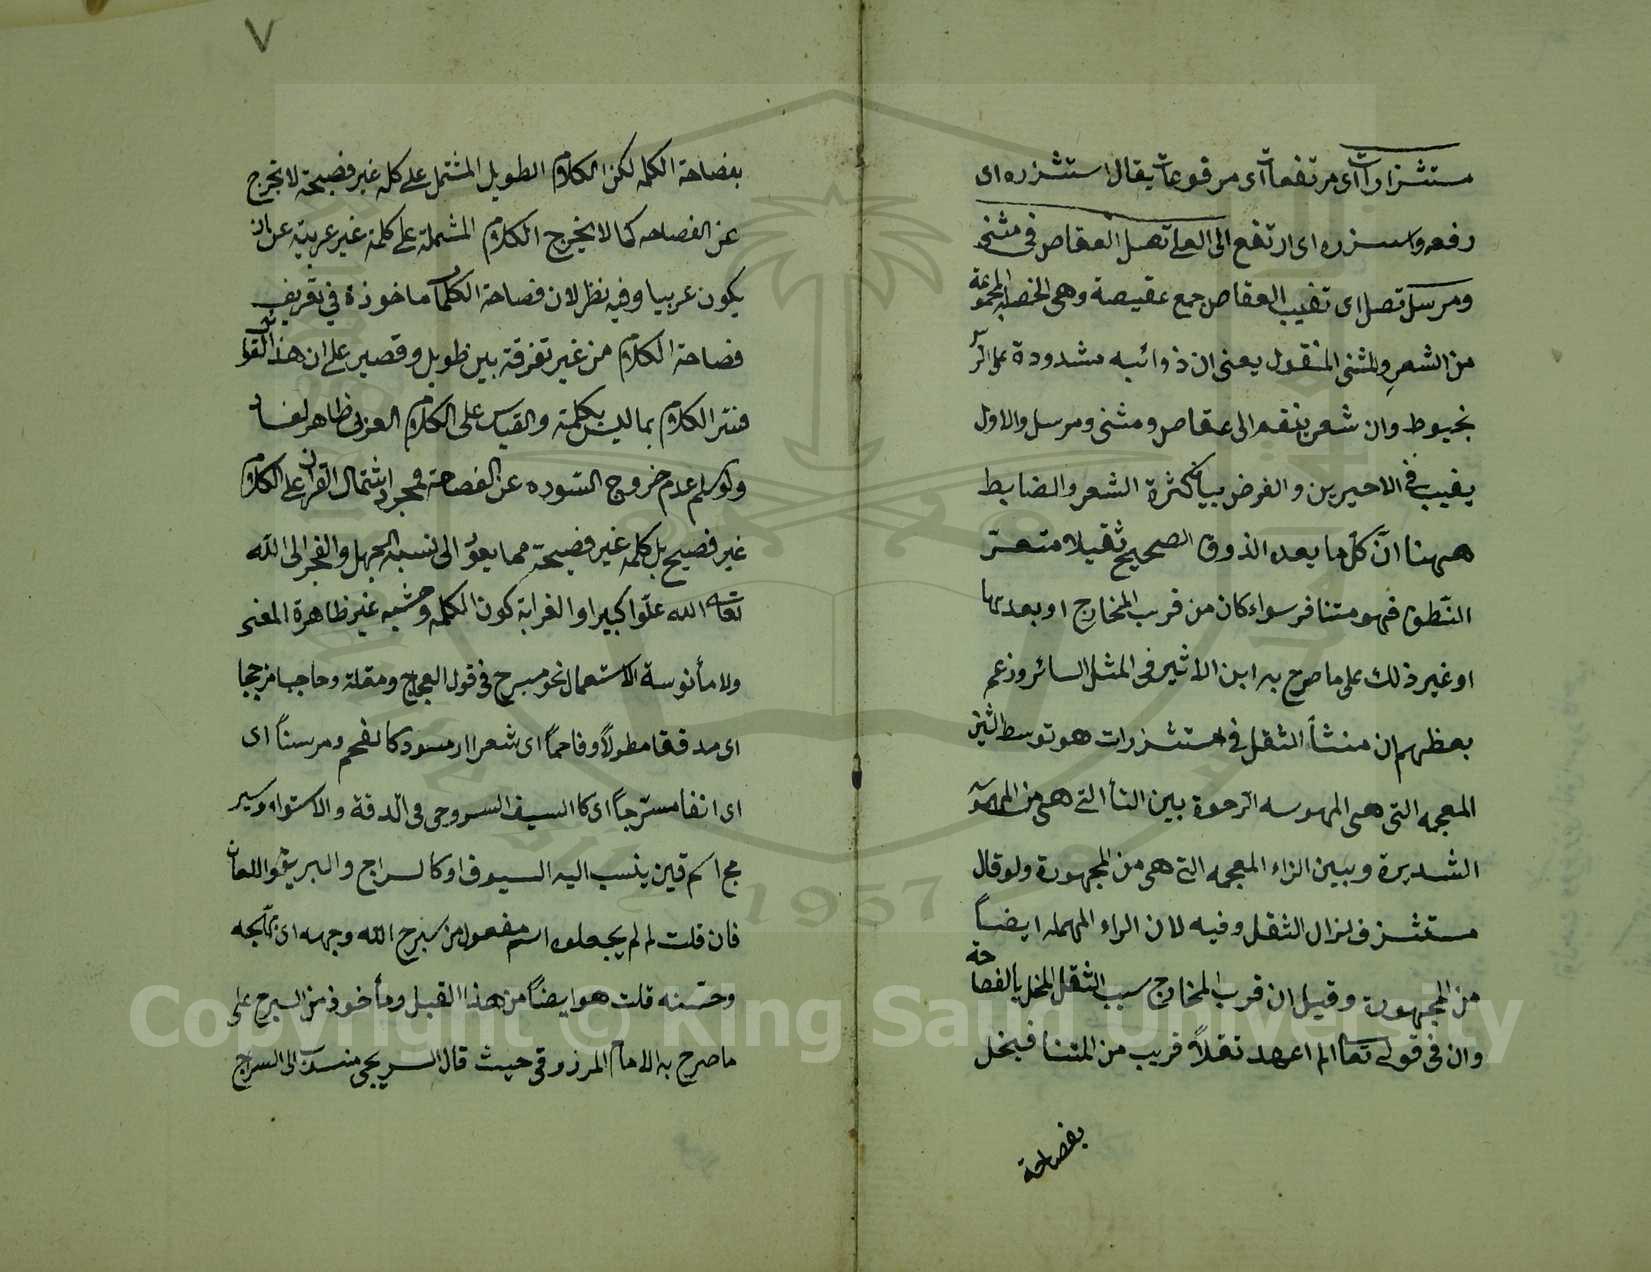 مستشزرات اى مرتفعات اى مرفوعات يقال استشزره اى
رفعه واستشزره اى ارتفع الى العلى تضل العقاص فى مثنى
ومرسل تضل اى تغيب العقاص جمع عقيصة وهى الخصلة المجموعة
من الشعر والمثنى المفتول يعنى ان ذوائبه مشدودة على الرأس
بخيوط وان شعره ينقسم الى عقاص ومثنى ومرسل والاول
يغيب فى الاخيرين والغرض بيان كثرة الشعر والضابط
ههنا انّ كلّ ما يعده الذوق الصحيح ثقيلا متعسّر
النّطق فهو متنافر سواء كان من قرب المخارج او بعدها
او غير ذلك على ما صرح به ابن الاثير فى المثل السائر وزعم
بعظهم ان منشأ الثقل فى مستشزرات هو توسط الشين
المعجمه التى هى المهموسه الرّخوة بين التأ التى هى من المهموسة
الشديدة وبين الزاء المعجمه التى هى من المجهورة ولو قال
مستشرف لزال الثقل وفيه لان الراء المهمله ايضاً
من المجهورة وقيل ان قرب المخارج سبب الثقل المخل بالفصاحة
وان فى قوله تعا الم اعهد ثقلاً قريب من المتنا فيخل
بفصاحة
٧
بفصاحة الكلمه لكن الكلام الطويل المشتمل على كلمه غير فصيحة لا يخرج
عن الفصاحه كما لا يخرج الكلام المشتملة على كلمة غير عربية عن ان
يكون عربيا وفيه نظر لان فصاحة الكلمات ماخوذة فى تعريف
فصاحة الكلام من غير تفرقة بين طويل وقصير على ان هذا القائل
فسّر الكلام بما ليس بكلمة والقياس على الكلام العربى ظاهر الفساد
ولو سلم عدم خروج السّوره عن الفصاحة فمجرد اشتمال القرآن على الكلام
غير فصيح بل كلمه غير فصيحة مما يعود الى نسبة الجهل والعجز الى اللّه
تعا اللّه علوّا كبيرا والغرابة كون الكلمه وحشيه غير ظاهرة المعنى
ولا مأنوسة الاستعمال نحو مسرج فى قول العجاج ومقلة وحاجبا مزججا
اى مدققا مطولاً وفاحماً اى شعرا اسود كالفحم ومرسناً اى
اى انفا مسرّجاً اى كا السيف السروجى فى الدّقة والاستواء وسير
مج اسم قين ينسب اليه السيوف او كالسراج والبريق واللمعان
فان قلت لم لم يجعلوه اسم مفعول من سرج اللّه وجهه اى بهّجه
وحسّنه قلت هو ايضاً من هذا القبل ومأخوذ من السرج على
ما صرح به الامام المرزوقى حيث قال السريجى منسوب الى السراج
Copyright © King Saud University
1957